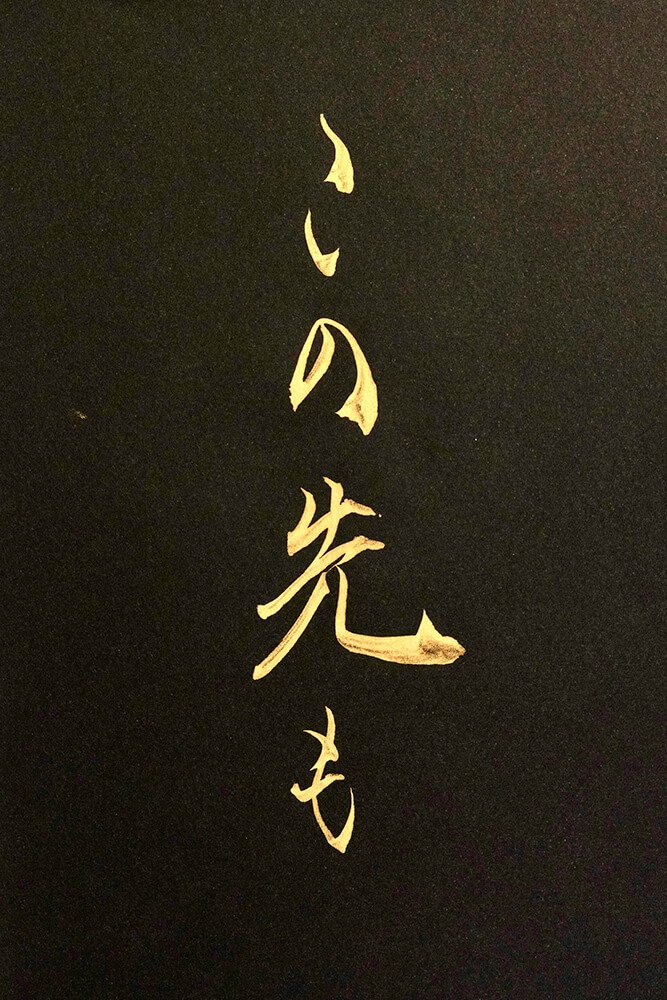 この先も